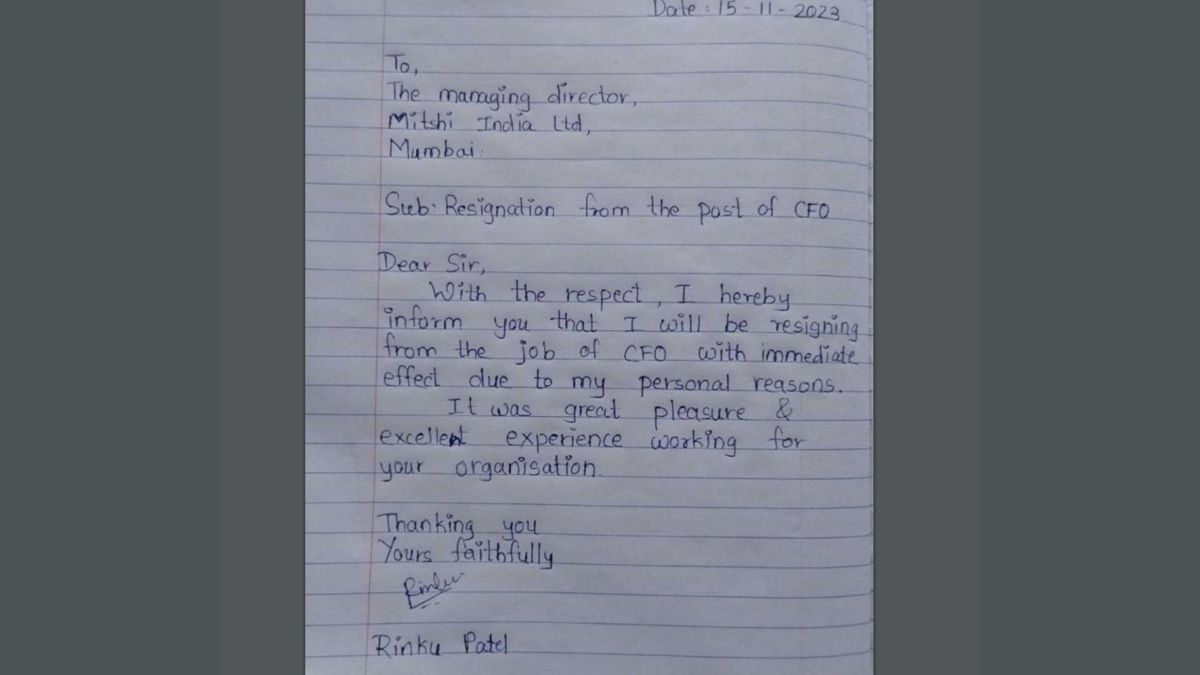 Date : 15 - 11 - 2023
To,
The managing director,
Mitshi India Ltd,
Mumbai.
Sub: Resignation from the post of CFO
Dear Sir,
With the respect, I hereby
inform you that I will be resigning
from the job of CFO with immediate
effect due to my personal reasons.
It was great pleasure &
excellent experience working for
your organisation.
Thanking you
Yours faithfully
Rinku
Rinku Patel